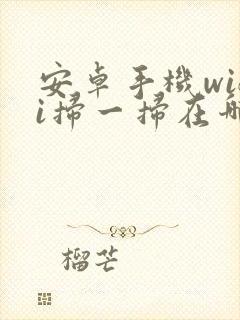 安卓手機wif
i掃一掃在哪
榴芒